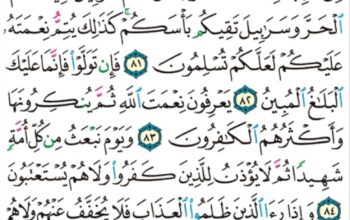 ٱلۡحَرَّ وَسَرَٰبِيلَ تَقِيكُم بَأۡسَكُمۡۚ كَذَٰلِكَ يُتِمُّ نِعۡمَتَهُۥ
عَلَيۡكُمۡ لَعَلَّكُمۡ تُسۡلِمُونَ ٨١ فَإِن تَوَلَّوۡاْ فَإِنَّمَا عَلَيۡكَ
ٱلۡبَلَٰغُ ٱلۡمُبِينُ ٨٢ يَعۡرِفُونَ نِعۡمَتَ ٱللَّهِ ثُمَّ يُنكِرُونَهَا
وَأَكۡثَرُهُمُ ٱلۡكَٰفِرُونَ ٨٣ وَيَوۡمَ نَبۡعَثُ مِن كُلِّ أُمَّةٖ
شَهِيدٗا ثُمَّ لَا يُؤۡذَنُ لِلَّذِينَ كَفَرُواْ وَلَا هُمۡ يُسۡتَعۡتَبُونَ
٨٤ وَإِذَا رَءَا ٱلَّذِينَ ظَلَمُواْ ٱلۡعَذَابَ فَلَا يُخَفَّفُ عَنۡهُمۡ وَلَا هُمۡ